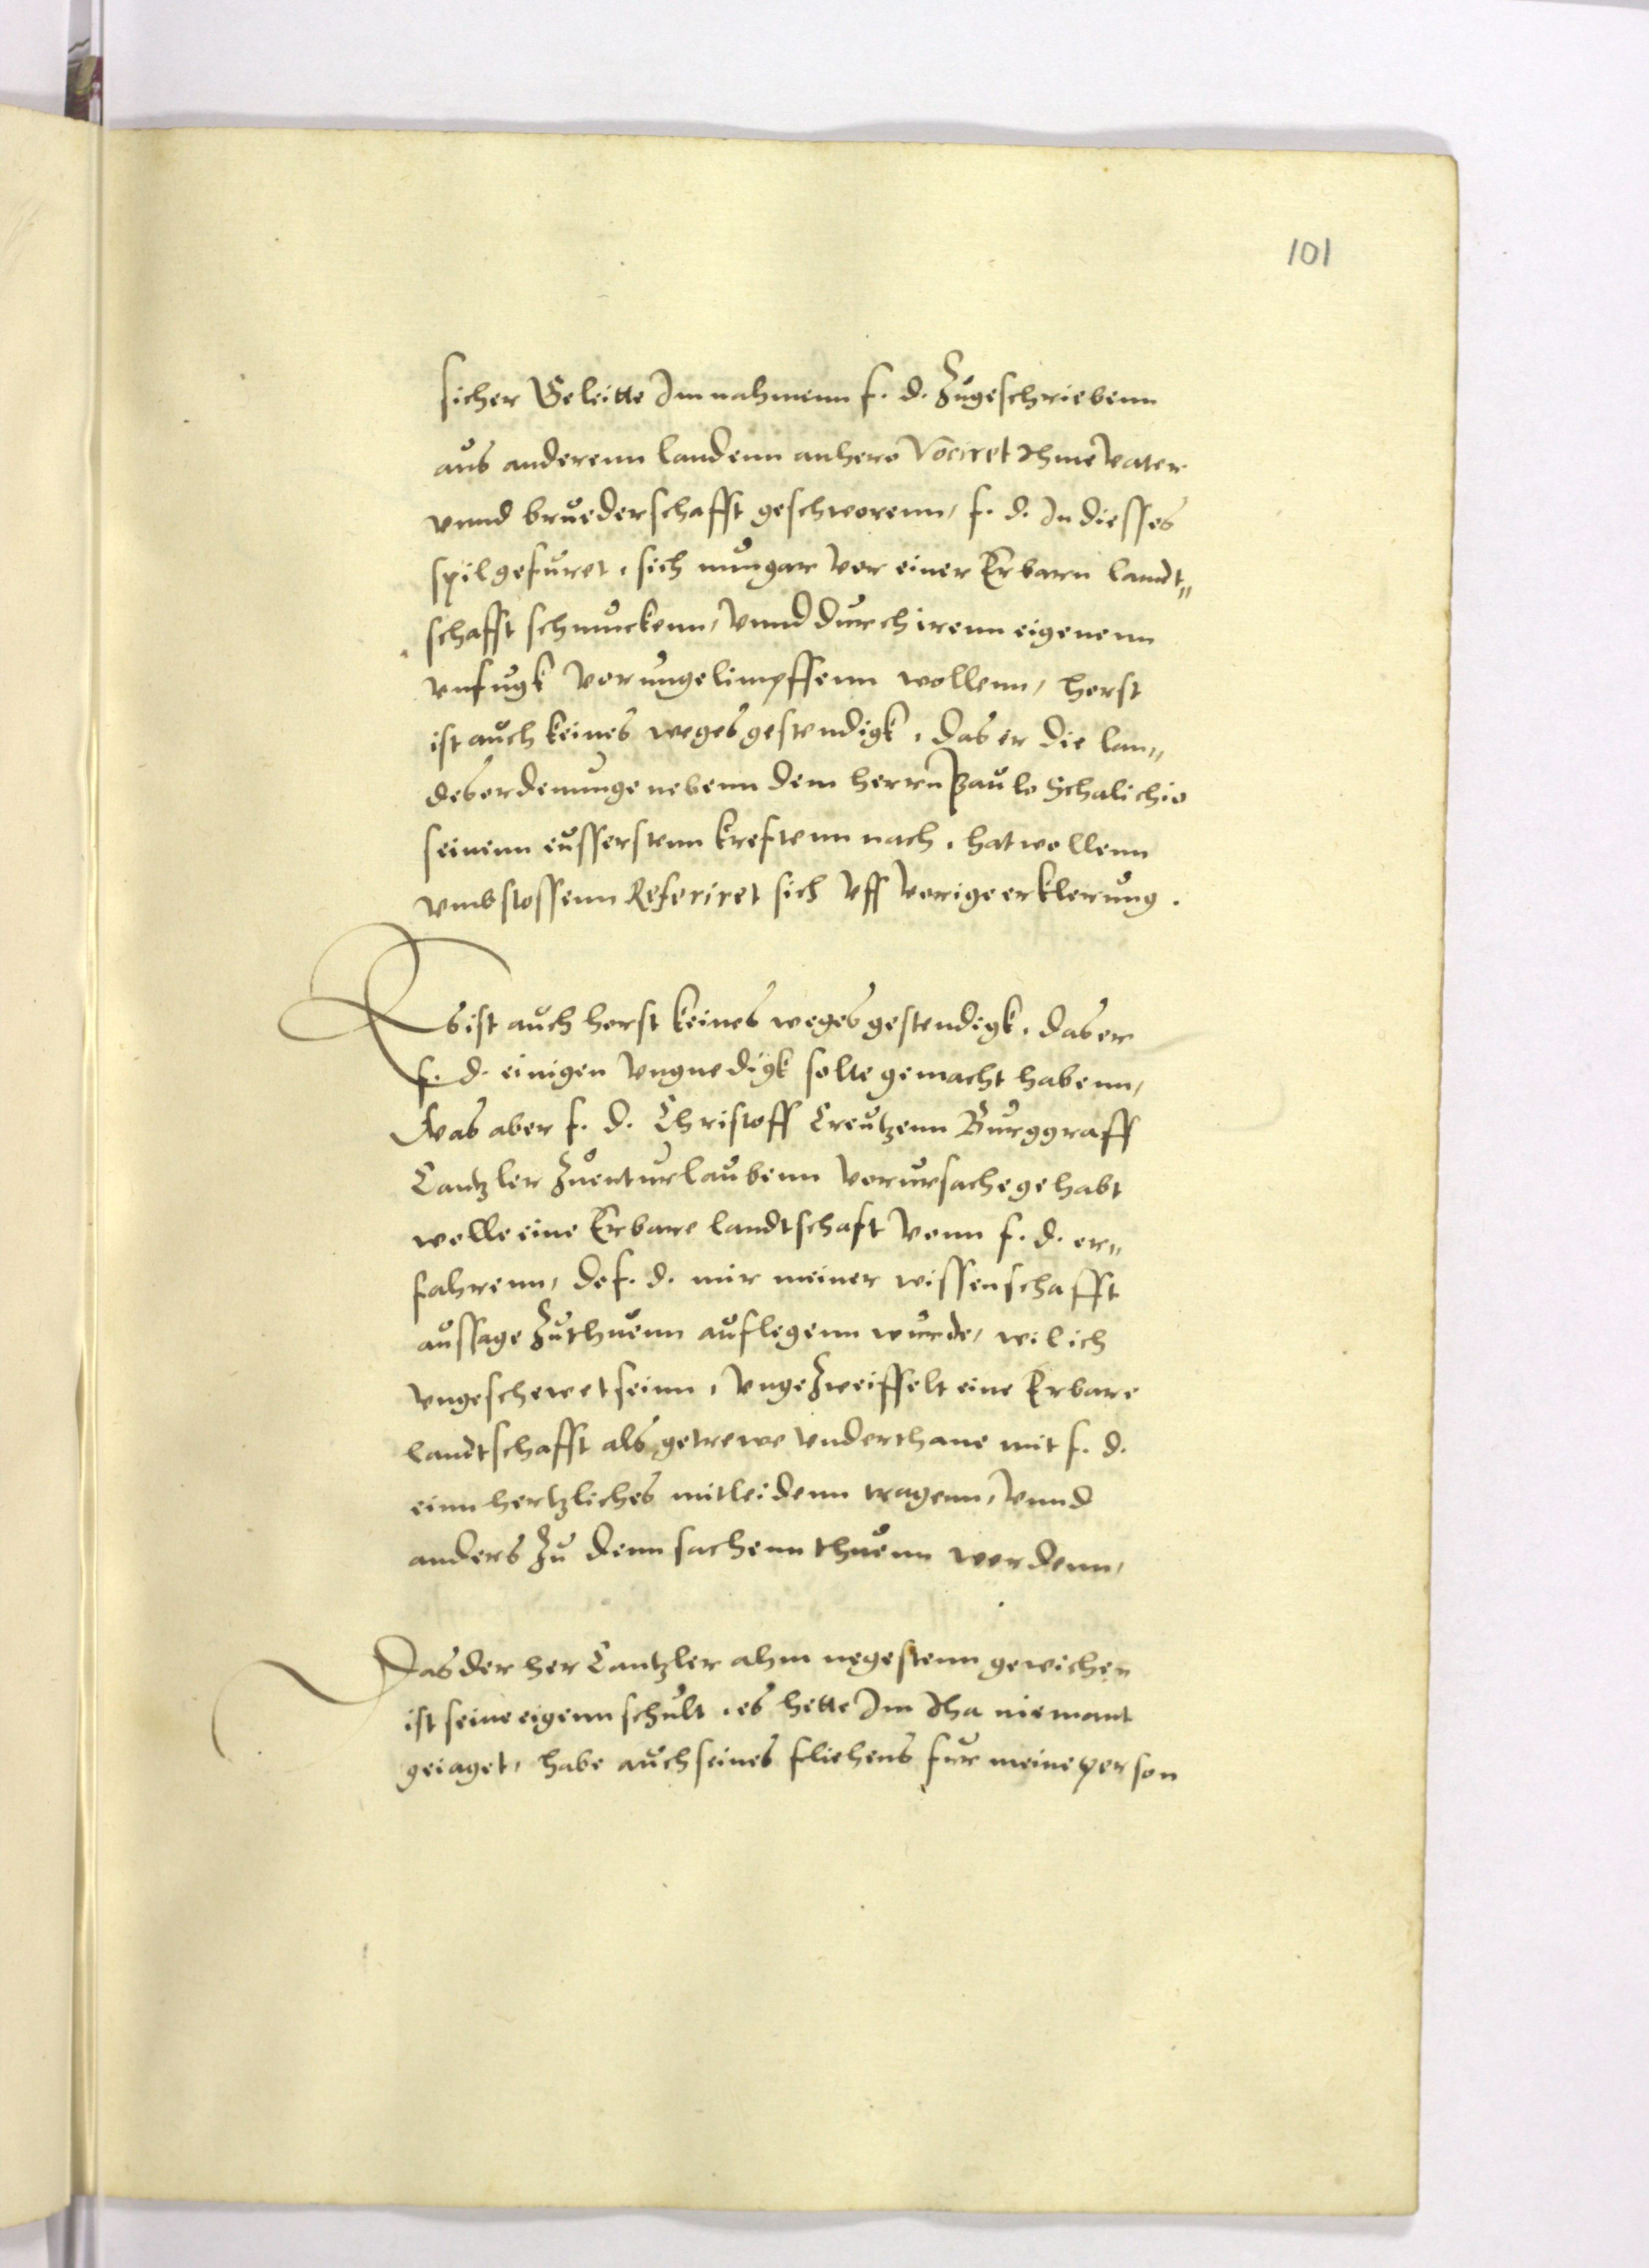 101
sicher Geleitte Im nahmenn f. d. Zugeschriebenn
aus anderenn landenn anhero Vociret Ihme Vater
vnnd bruederschafft geschworenn, f. d. In diesses
spil gefuret, sich nungar vor einer Erbarn landt„
schafft schmuckenn, Vnnd durch irenn eigenenn
vnfugk Vorungelimpffenn wollenn, horst
ist auch keines weges gestendigk, das er die lan„
desordenunge nebenn dem herrn Paulo Schalichio
seinenn eussersten krefftenn nach, hat wollenn
vmbstossenn Referiret sich Vff Vorige erklerung.
Es ist auch horst keines weges gestendigk, das er
f. d. einigen Vngnedigk solte gemacht habenn,
Was aber f. d. Christoff Creutzenn Burggraff
Cantzler Zuenturlaubenn Vorursache gehabt
wolle eine Erbare landtschaft Vonn f. d. er„
fahrenn, Do f. d. mir meiner wissenschafft
aussage Zuthuenn auflegenn wurde, wil ich
vngeschewet seinn, Vngezweiffelt eine Erbare
landtschafft als getrewe Vnderthane mit f. d.
einn hertzliches mitleidenn tragenn, Vnnd
anders Zu denn sachenn thuenn werdenn,
Das der her Cantzler ahm negestenn gewichen
ist seine eigenn schult, es hette Im Iha niemant
geiaget, habe auch seines fliehens fur meine person